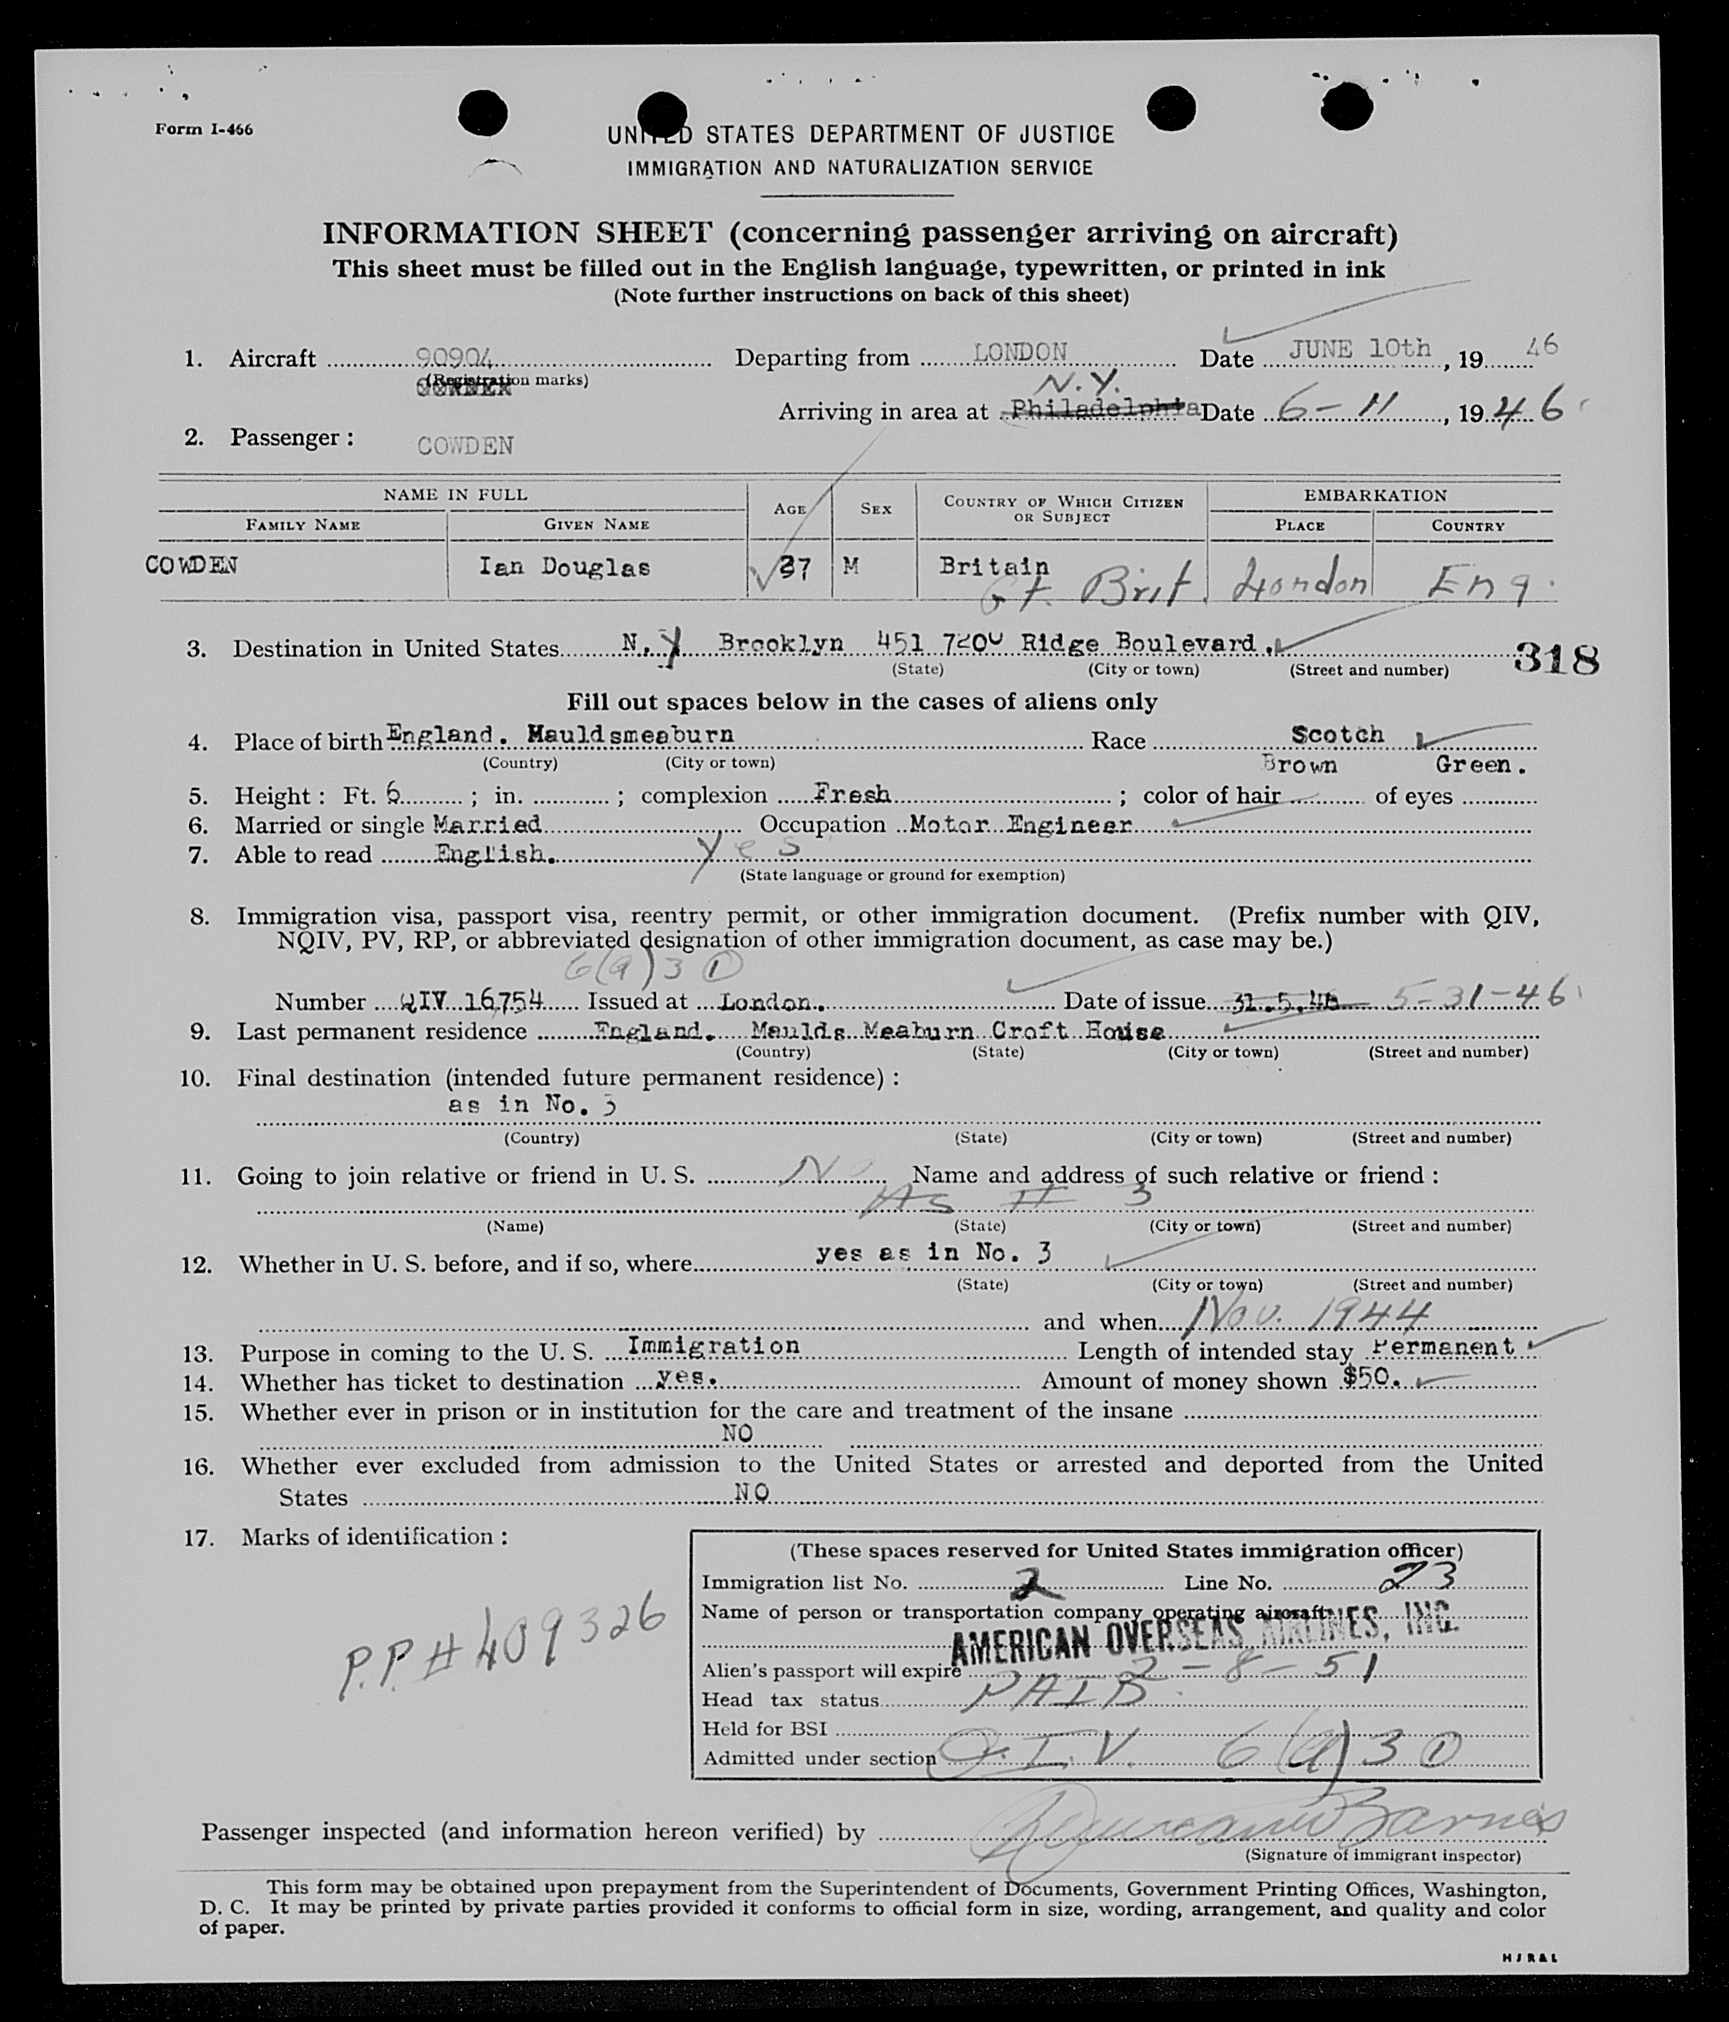 Form I-466
UNITED STATES DEPARTMENT OF JUSTICE
IMMIGRATION AND NATURALIZATION SERVICE
INFORMATION SHEET (concerning passenger arriving on aircraft)
This sheet must be filled out in the English language, typewritten, or printed in ink
(Note further instructions on back of this sheet)
1. Aircraft 90904 Departing from LONDON Date JUNE 10th, 1946
(Registration marks)
N.Y.
Arriving in area at Philadelphia Date 6-11, 1946
2. Passenger: COWDEN
NAME IN FULL AGE SEX COUNTRY OF WHICH CITIZEN OR SUBJECT EMBARKATION
FAMILY NAME GIVEN NAME PLACE COUNTRY
COWDEN Ian Douglas 37 M Britain
Gt. Brit. London Eng.
3. Destination in United States N.Y Brooklyn 451 7200 Ridge Boulevard.
(State) (City or town) (Street and number) 318
Fill out spaces below in the cases of aliens only
4. Place of birth England. Mauldsmeaburn Race Scotch
(Country) (City or town) Brown Green.
5. Height: Ft. 6 ; in. ; complexion Fresh ; color of hair of eyes
6. Married or single Married Occupation Motor Engineer
7. Able to read English. Yes
(State language or ground for exemption)
8. Immigration visa, passport visa, reentry permit, or other immigration document. (Prefix number with QIV,
NQIV, PV, RP, or abbreviated designation of other immigration document, as case may be.)
6(a)3 ①
Number QIV 16,754 Issued at London. Date of issue 31.5.46 5-31-46
9. Last permanent residence England. Maulds Meaburn Croft House
(Country) (State) (City or town) (Street and number)
10. Final destination (intended future permanent residence):
as in No. 3
(Country) (State) (City or town) (Street and number)
11. Going to join relative or friend in U. S. No Name and address of such relative or friend:
As # 3
(Name) (State) (City or town) (Street and number)
12. Whether in U. S. before, and if so, where yes as in No. 3
(State) (City or town) (Street and number)
and when Nov. 1944
13. Purpose in coming to the U. S. Immigration Length of intended stay Permanent
14. Whether has ticket to destination yes. Amount of money shown $50.
15. Whether ever in prison or in institution for the care and treatment of the insane
NO
16. Whether ever excluded from admission to the United States or arrested and deported from the United
States NO
17. Marks of identification:
P.P.# 409326
(These spaces reserved for United States immigration officer)
Immigration list No. 2 Line No. 23
Name of person or transportation company operating aircraft:
AMERICAN OVERSEAS AIRLINES, INC.
Alien's passport will expire 2-8-51
Head tax status PAID.
Held for BSI
Admitted under section Q.I.V. 6(a)3 ①
Passenger inspected (and information hereon verified) by Barnes
(Signature of immigrant inspector)
This form may be obtained upon prepayment from the Superintendent of Documents, Government Printing Offices, Washington,
D. C. It may be printed by private parties provided it conforms to official form in size, wording, arrangement, and quality and color
of paper.
HJR&L